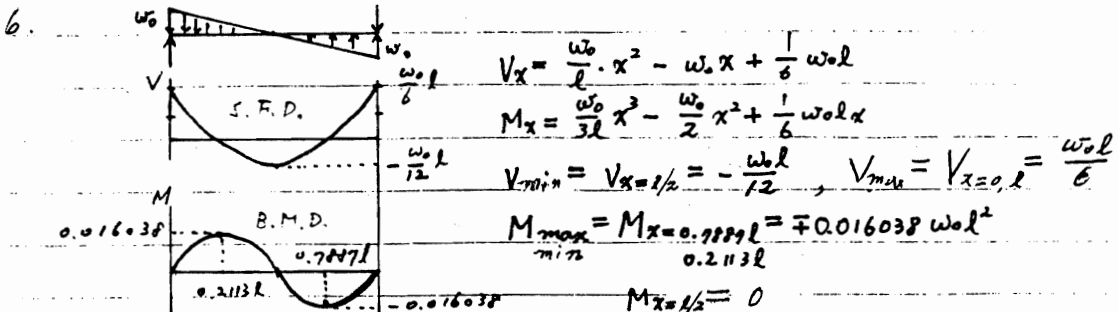 6.
w₀
w₀
V
w₀/6 l
S.F.D.
- w₀/12 l
M
B.M.D.
0.016038
0.7887l
0.2113l
-0.016038
Vx = w₀/l · x² - w₀x + 1/6 w₀l
Mx = w₀/3l x³ - w₀/2 x² + 1/6 w₀lx
Vmin = Vx=l/2 = - w₀l/12 , Vmax = Vx=0,l = w₀l/6
M max min = Mx=0.7887l 0.2113l = ∓0.016038 w₀l²
Mx=l/2 = 0